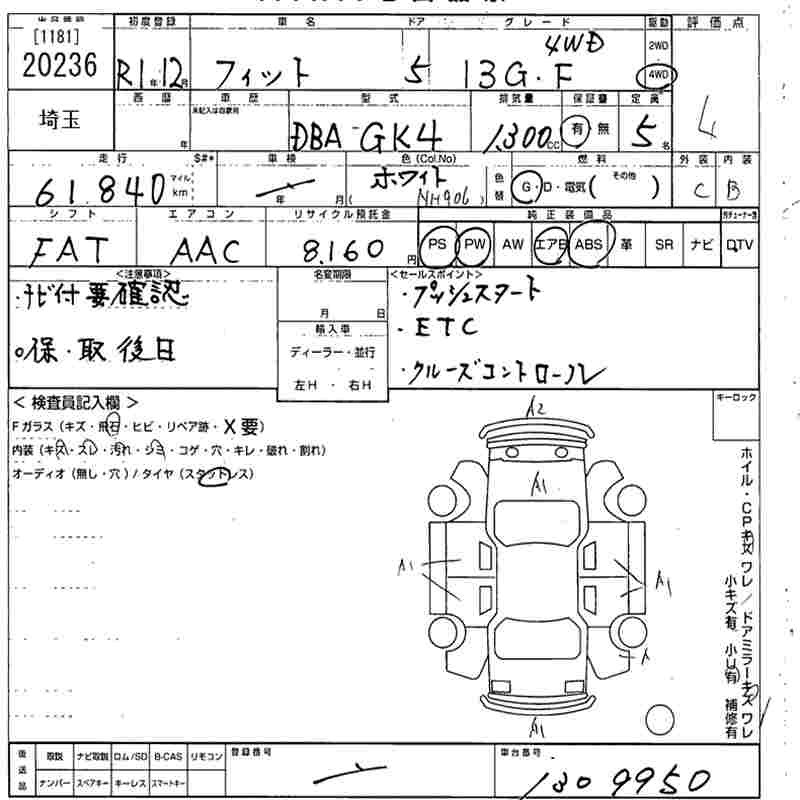 出品番号 初度登録 車名 ドア グレード 駆動 評価点
[1181] 20236 R1年12月 フィット 5 13G・F 4WD 2WD 4WD 4
埼玉 西暦 車歴 型式 排気量 保証書 定員
年 未記入は自家用 DBA-GK4 1,300cc 有 無 5名
走行 車検 色(Col.No) 燃料 外装 内装
61,840 マイル km 年 月 ホワイト NH906 色替 G・D・電気( その他 ) C B
シフト エアコン リサイクル預託金 純正装備品
FAT AAC 8,160円 PS PW AW エアB ABS 革 SR ナビ DTV
<注意事項> 名変期限 <セールスポイント>
・ナビ付要確認 月 日 ・プッシュスタート
輸入車 ・ETC
○保・取 後日 ディーラー・並行
左H・右H ・クルーズコントロール
<検査員記入欄> キーロック
Fガラス(キズ・飛石・ヒビ・リペア跡・X要)
内装(キズ・スレ・汚れ・シミ・コゲ・穴・キレ・破れ・割れ)
オーディオ(無し・穴)/タイヤ(スタッドレス)
A2
A1
A1 A1
A
A1
ホイル・CPキズ ワレ/ドアミラーキズ ワレ
小キズ有、小U有 補修有
後送品 取説 ナビ取説 ロム/SD B-CAS リモコン 登録番号 車台番号
ナンバー スペアキー キーレス スマートキー 1309950